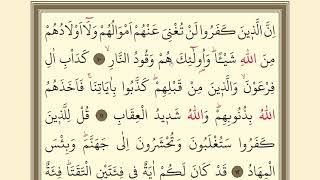 اِنَّ الَّذٖينَ كَفَرُوا لَنْ تُغْنِيَ عَنْهُمْ اَمْوَالُهُمْ وَلَٓا اَوْلَادُهُمْ
مِنَ اللّٰهِ شَيْـًٔاؕ وَاُو۬لٰٓئِكَ هُمْ وَقُودُ النَّارِۙ ﴿١٠﴾ كَدَاْبِ اٰلِ
فِرْعَوْنَۙ وَالَّذٖينَ مِنْ قَبْلِهِمْؕ كَذَّبُوا بِاٰيَاتِنَاۚ فَاَخَذَهُمُ
اللّٰهُ بِذُنُوبِهِمْؕ وَاللّٰهُ شَدٖيدُ الْعِقَابِ ﴿١١﴾ قُلْ لِلَّذٖينَ
كَفَرُوا سَتُغْلَبُونَ وَتُحْشَرُونَ اِلٰى جَهَنَّمَؕ وَبِئْسَ
الْمِهَادُ ﴿١٢﴾ قَدْ كَانَ لَكُمْ اٰيَةٌ فٖي فِئَتَيْنِ الْتَقَتَاؕ فِئَةٌ